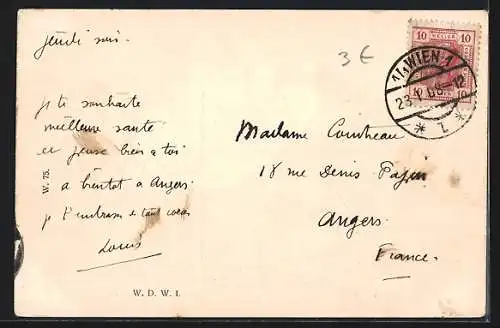 jeudi soir.
je te souhaite
meilleure santé
et pense bien a toi
a bientot a Angers
je t'embrasse de tout coeur
Louis
W. 75.
W. D. W. I.
3 €
10 HELLER 10
1/1 WIEN 1
23.
* *
Madame Cointreau
18 rue Denis Papin
Angers.
France.